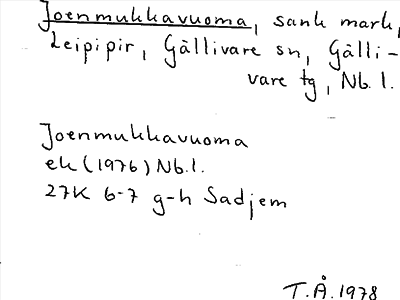 Joenmukkavuoma, sank mark,
Leipipir, Gällivare sn, Gälli-
vare tg, Nb.l.
Joenmukkavuoma
ek (1976) Nb.l.
27K 6-7 g-h Sadjem
T.Å. 1978